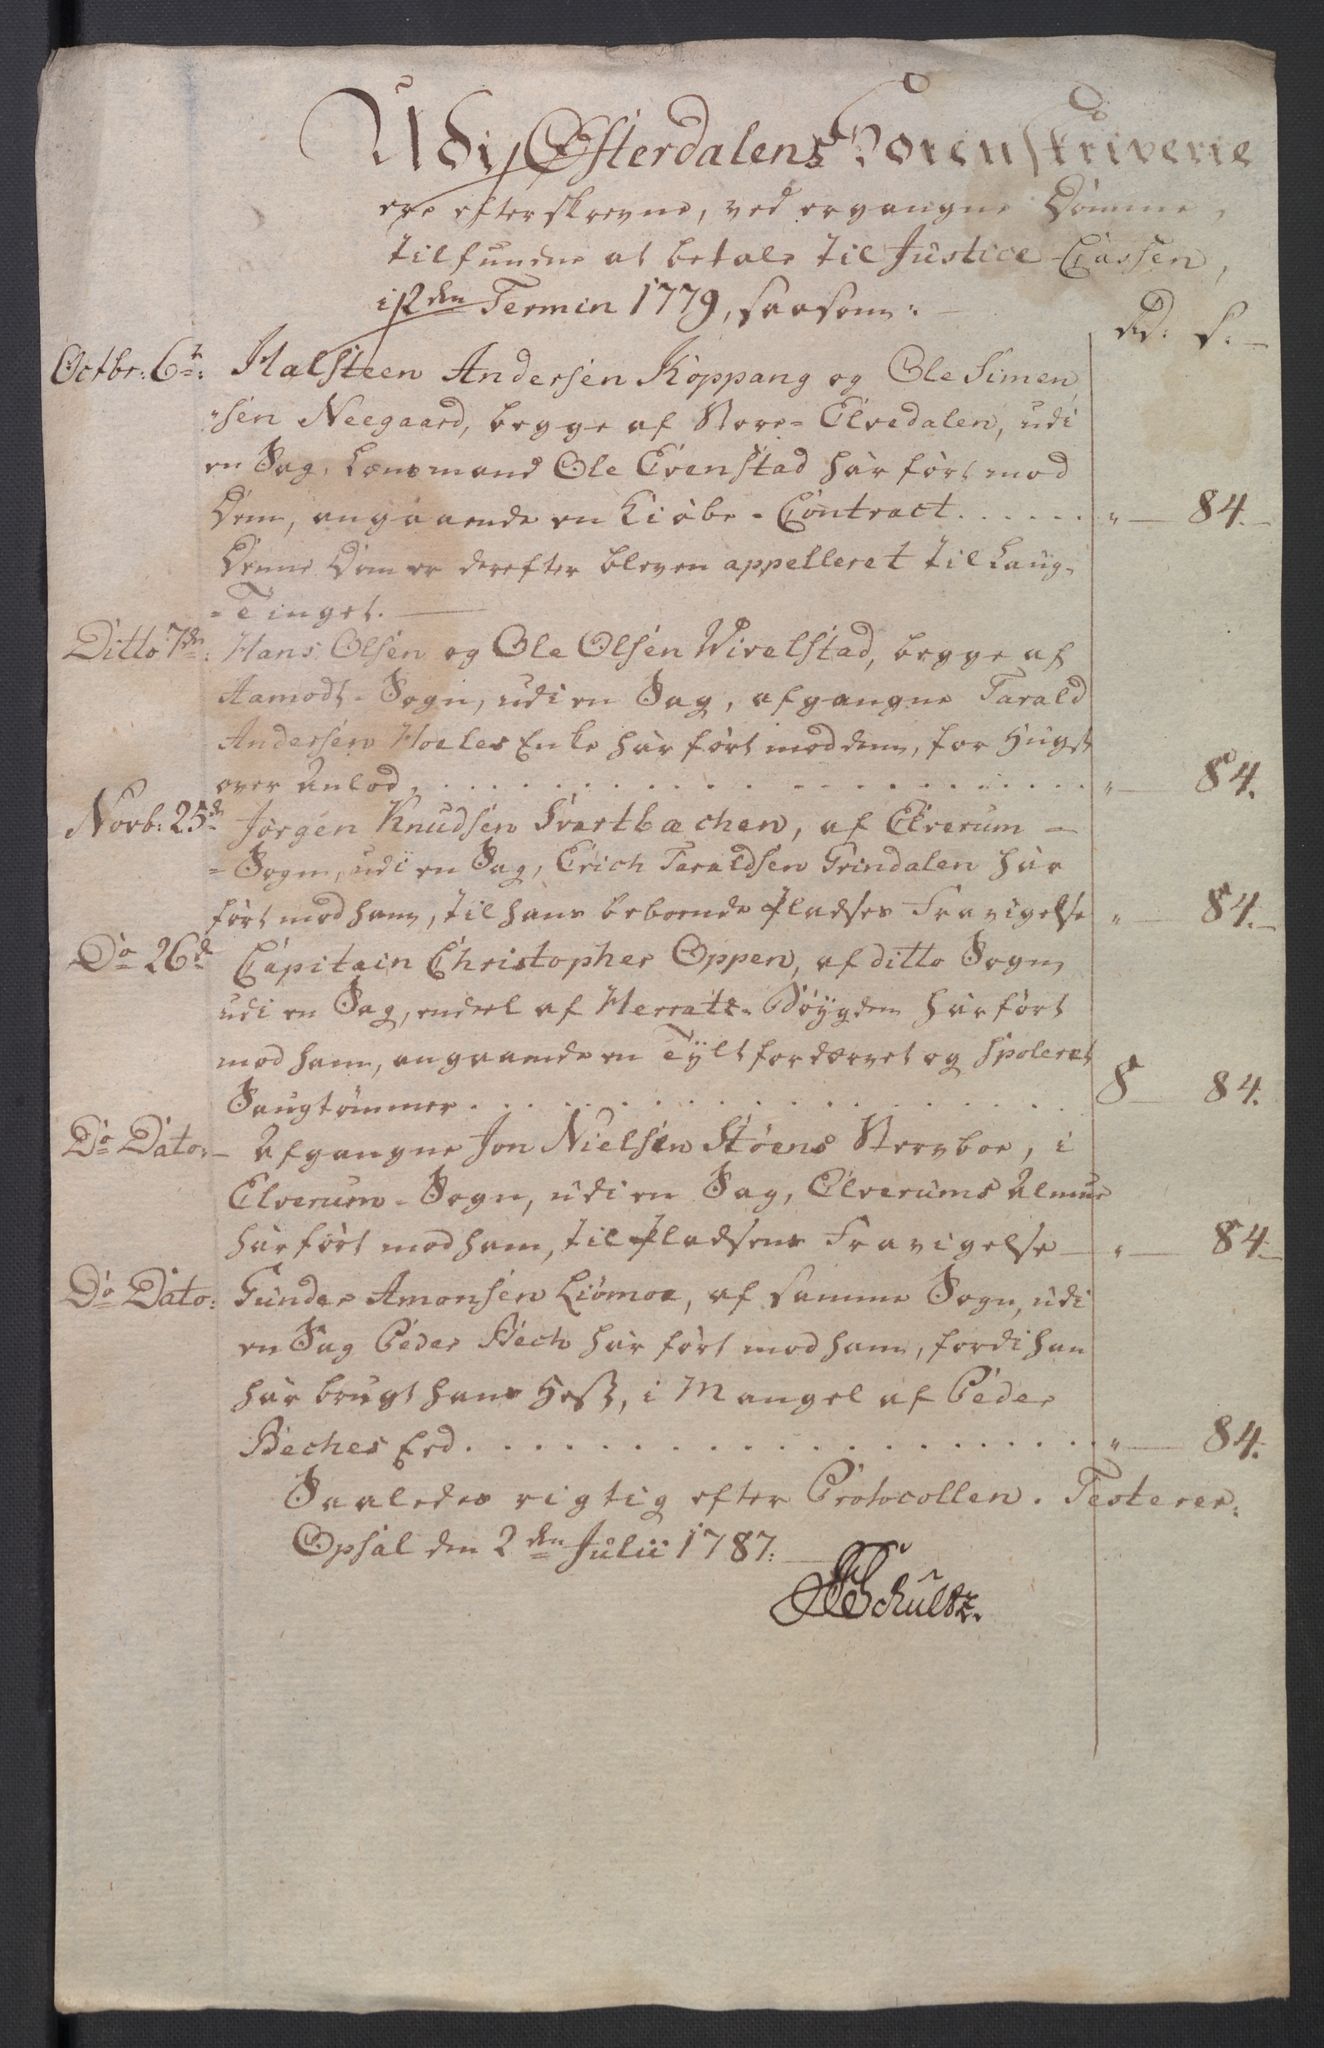 Udi Østerdalens Sorenskriverie
ere efterskrevne, ved ergangne Domme,
tilfundne at betale til Justice-Cassen,
i 2den Termin 1779, saasom:
Rd: S:
Octbr: 6te: Halsteen Andersen Koppang og Ole Simen
sen Neegaard, begge af Store-Elvedalen, udi
en Sag, Lensmand Ole Evenstad har ført mod
Dem, angaaende en Kiøbe-Contract . . . . . . " — 84.
Denne Dom er derefter bleven appelleret til Laug-
-Tinget.
Ditto 7de: Hans Olsen og Ole Olsen Wivelstad, begge af
Aamodt-Sogn, udi en Sag, afgangne Tarald
Andersen Hoeles Enke har ført mod dem, for Hugst
over Anlod . . . . . . " — 84.
Novb: 25de Jørgen Knudsen Svartbachen, af Elverum
-Sogn, udi en Sag, Erich Taraldsen Grindalen har
ført mod ham, til hans beboende Pladses Fravigelse " — 84.
Do 26de Capitain Christopher Oppen, af ditto Sogn,
udi en Sag, endeel af Herrats-Bøygden har ført
mod ham, angaaende en Tylt fordærvet og Spoleret
Saugtømmer . . . . . . 8 — 84.
Do Dato: Afgangne Jon Nielsen Støens Stervboe, i
Elverum-Sogn, udi en Sag, Elverums Almue
har ført mod ham, til Pladsens Fravigelse — " — 84.
Do Dato: Gunder Amonsen Liømoe, af samme Sogn, udi
en Sag Peder Bech har ført mod ham, fordi han
har brugt hans Hest, i Mangel af Peder
Beches Eed . . . . . . " — 84.
Saaledes rigtig efter Protocollen. Testerer:
Opsal den 2den Julii 1787:
Schultz.